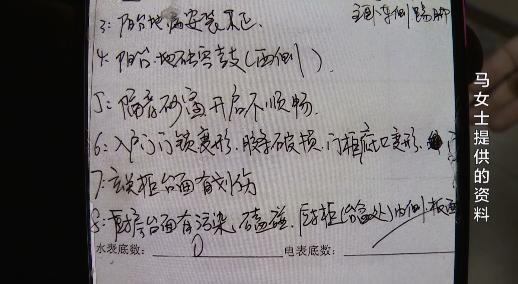 主卧东侧踢脚
3: 阳台地漏安装不正.
4. 阳台.地砖空鼓(西侧).
5: 隔音纱窗开启不顺畅.
6: 入户门门锁变形.胶条破损.门柜府口变形.
7: 玄关柜台面有划伤
8: 厨房台面有污染,磕碰.厨柜 内侧板面
水表底数: 0 电表底数:
马女士提供的资料